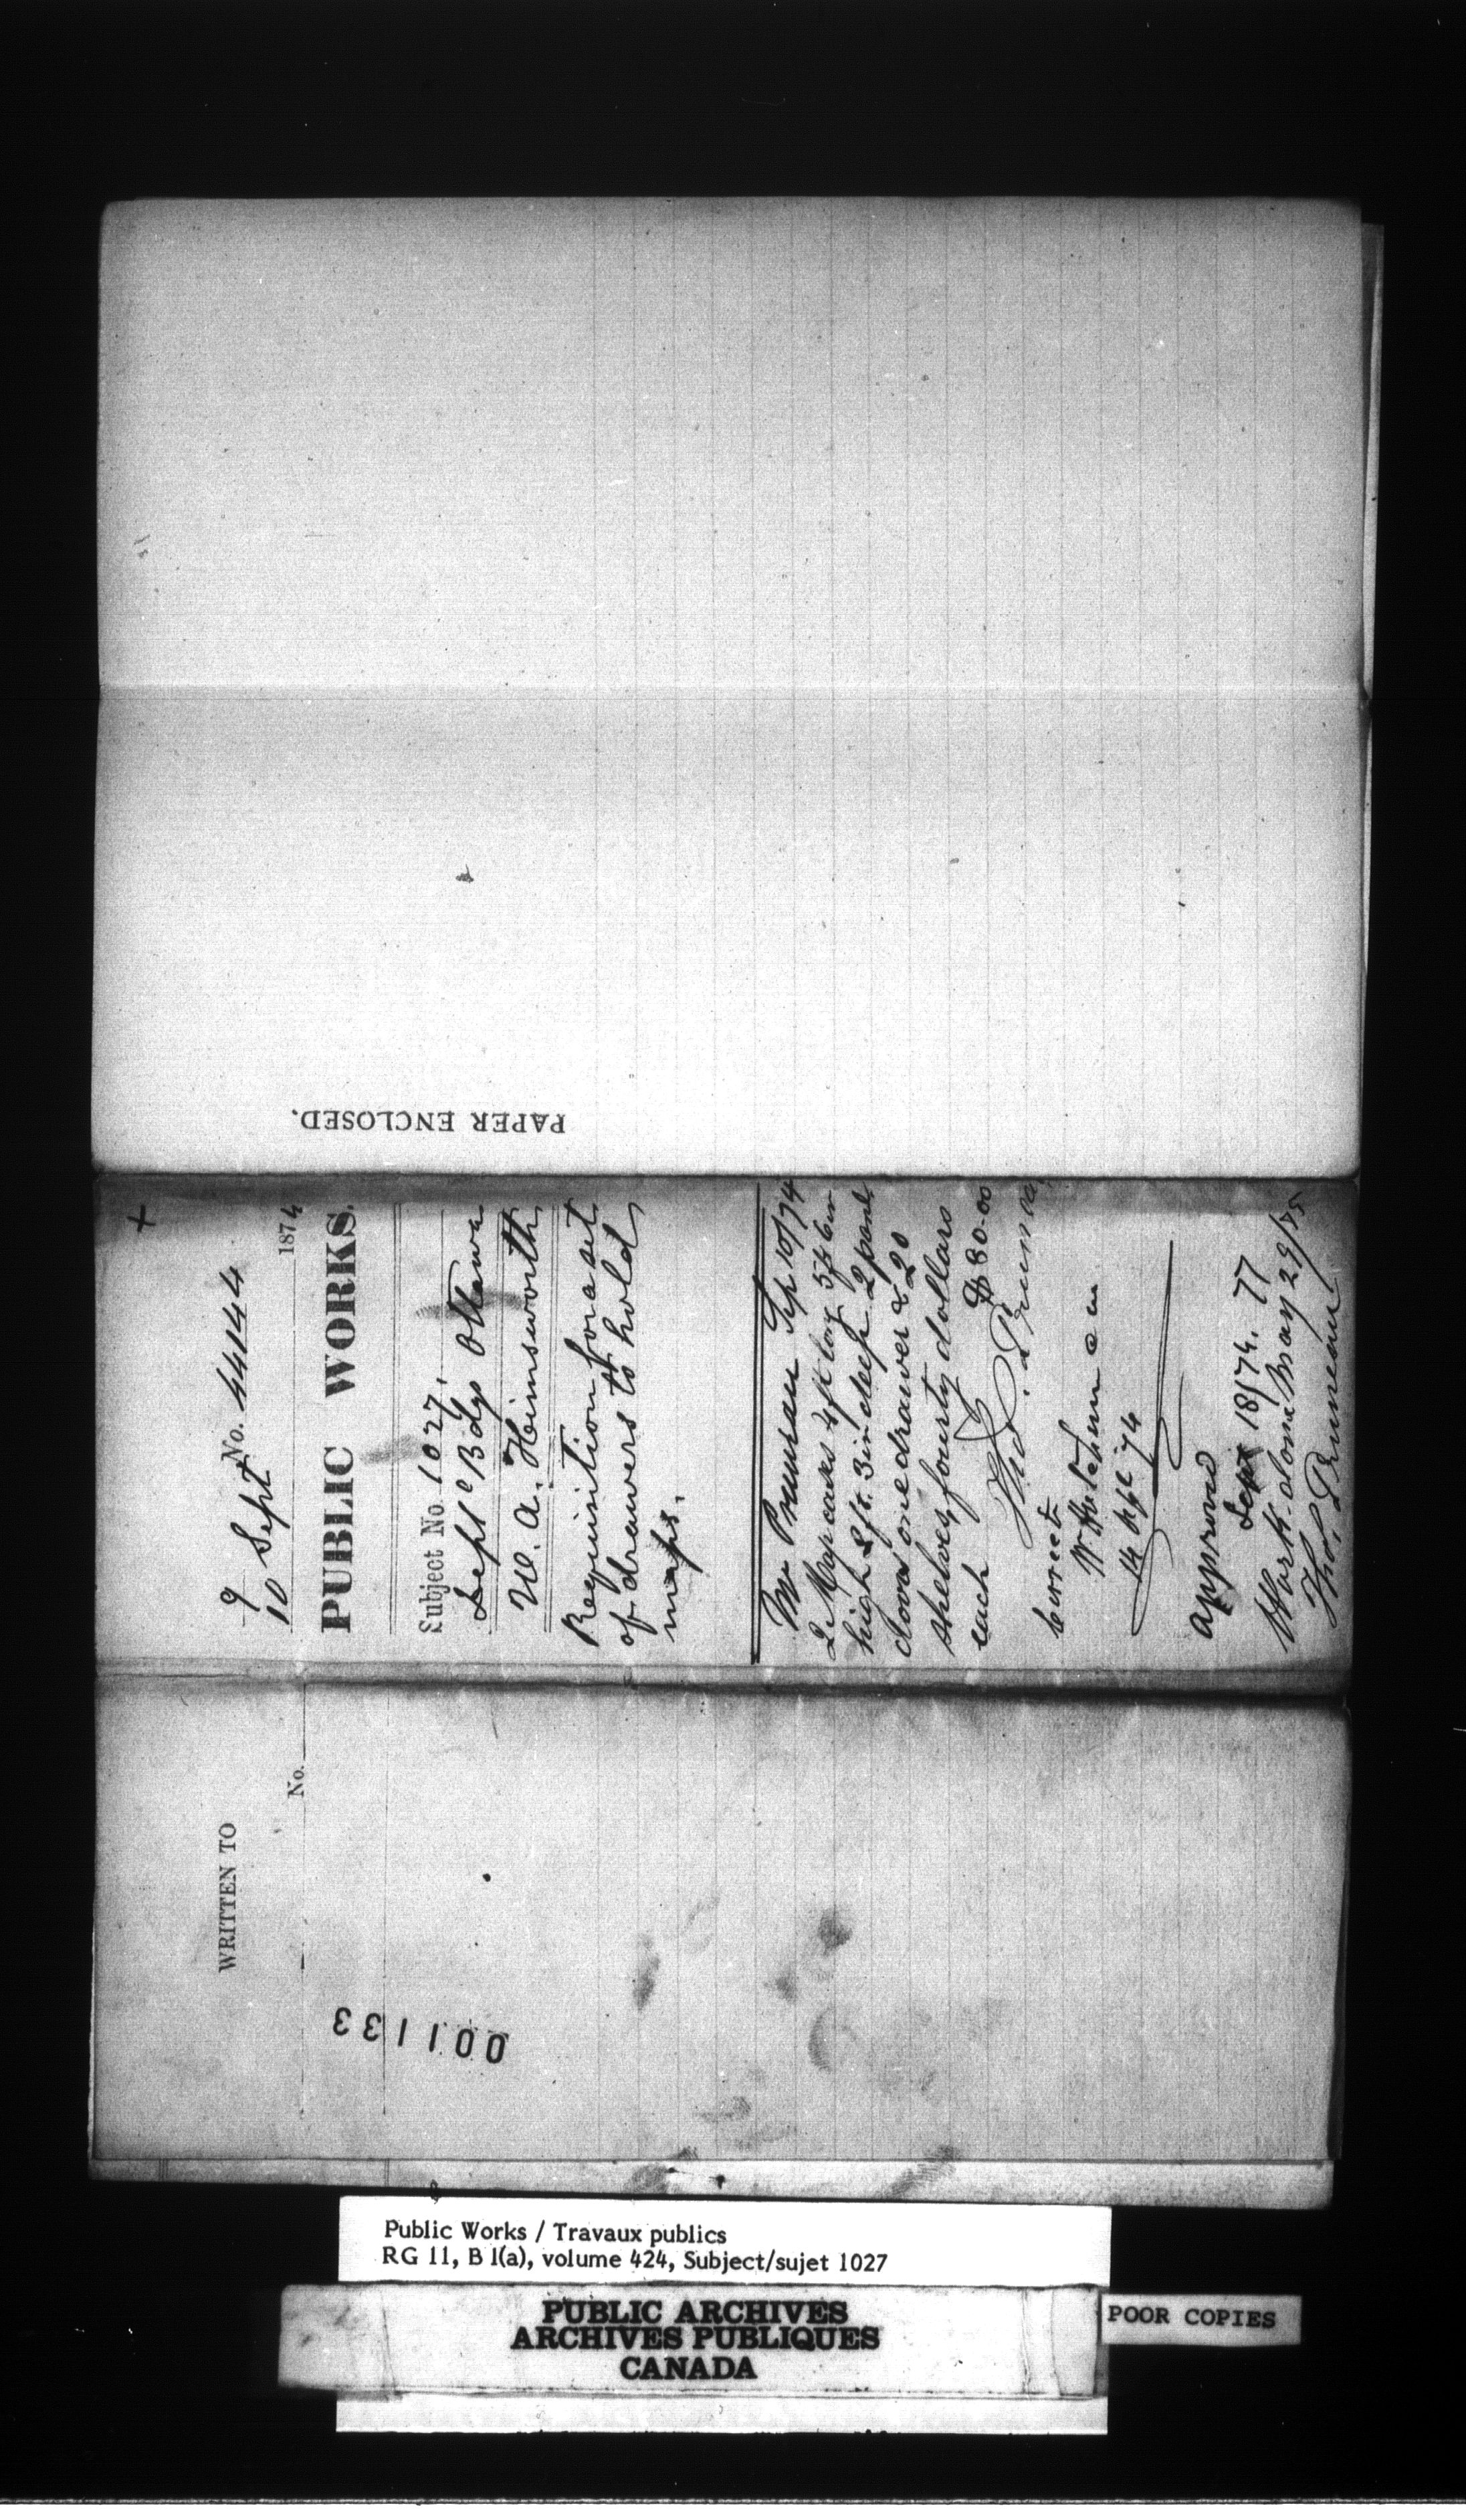 PAPER ENCLOSED.
+
9 No. 44144
10 Sept 1874
PUBLIC WORKS.
Subject No. 1027.
Deptl Bdgs Ottawa
W. A. Himsworth
Requisition for a set
of drawers to hold
maps.
Mr Pruneau Sep 10/74
2 Map cases 4 ft long 5ft 6in
high 2 ft. 3 in deep 2 panl
doors one drawer & 20
shelves fourty dollars
each $80-00
Tho. Pruneau
Correct
14 Sept 74
Approved
Sept 18/74. TT
Work done May 29/75
Tho. Pruneau
WRITTEN TO
No.
001133
Public Works / Travaux publics
RG 11, B 1(a), volume 424, Subject/sujet 1027
PUBLIC ARCHIVES
ARCHIVES PUBLIQUES
CANADA
POOR COPIES